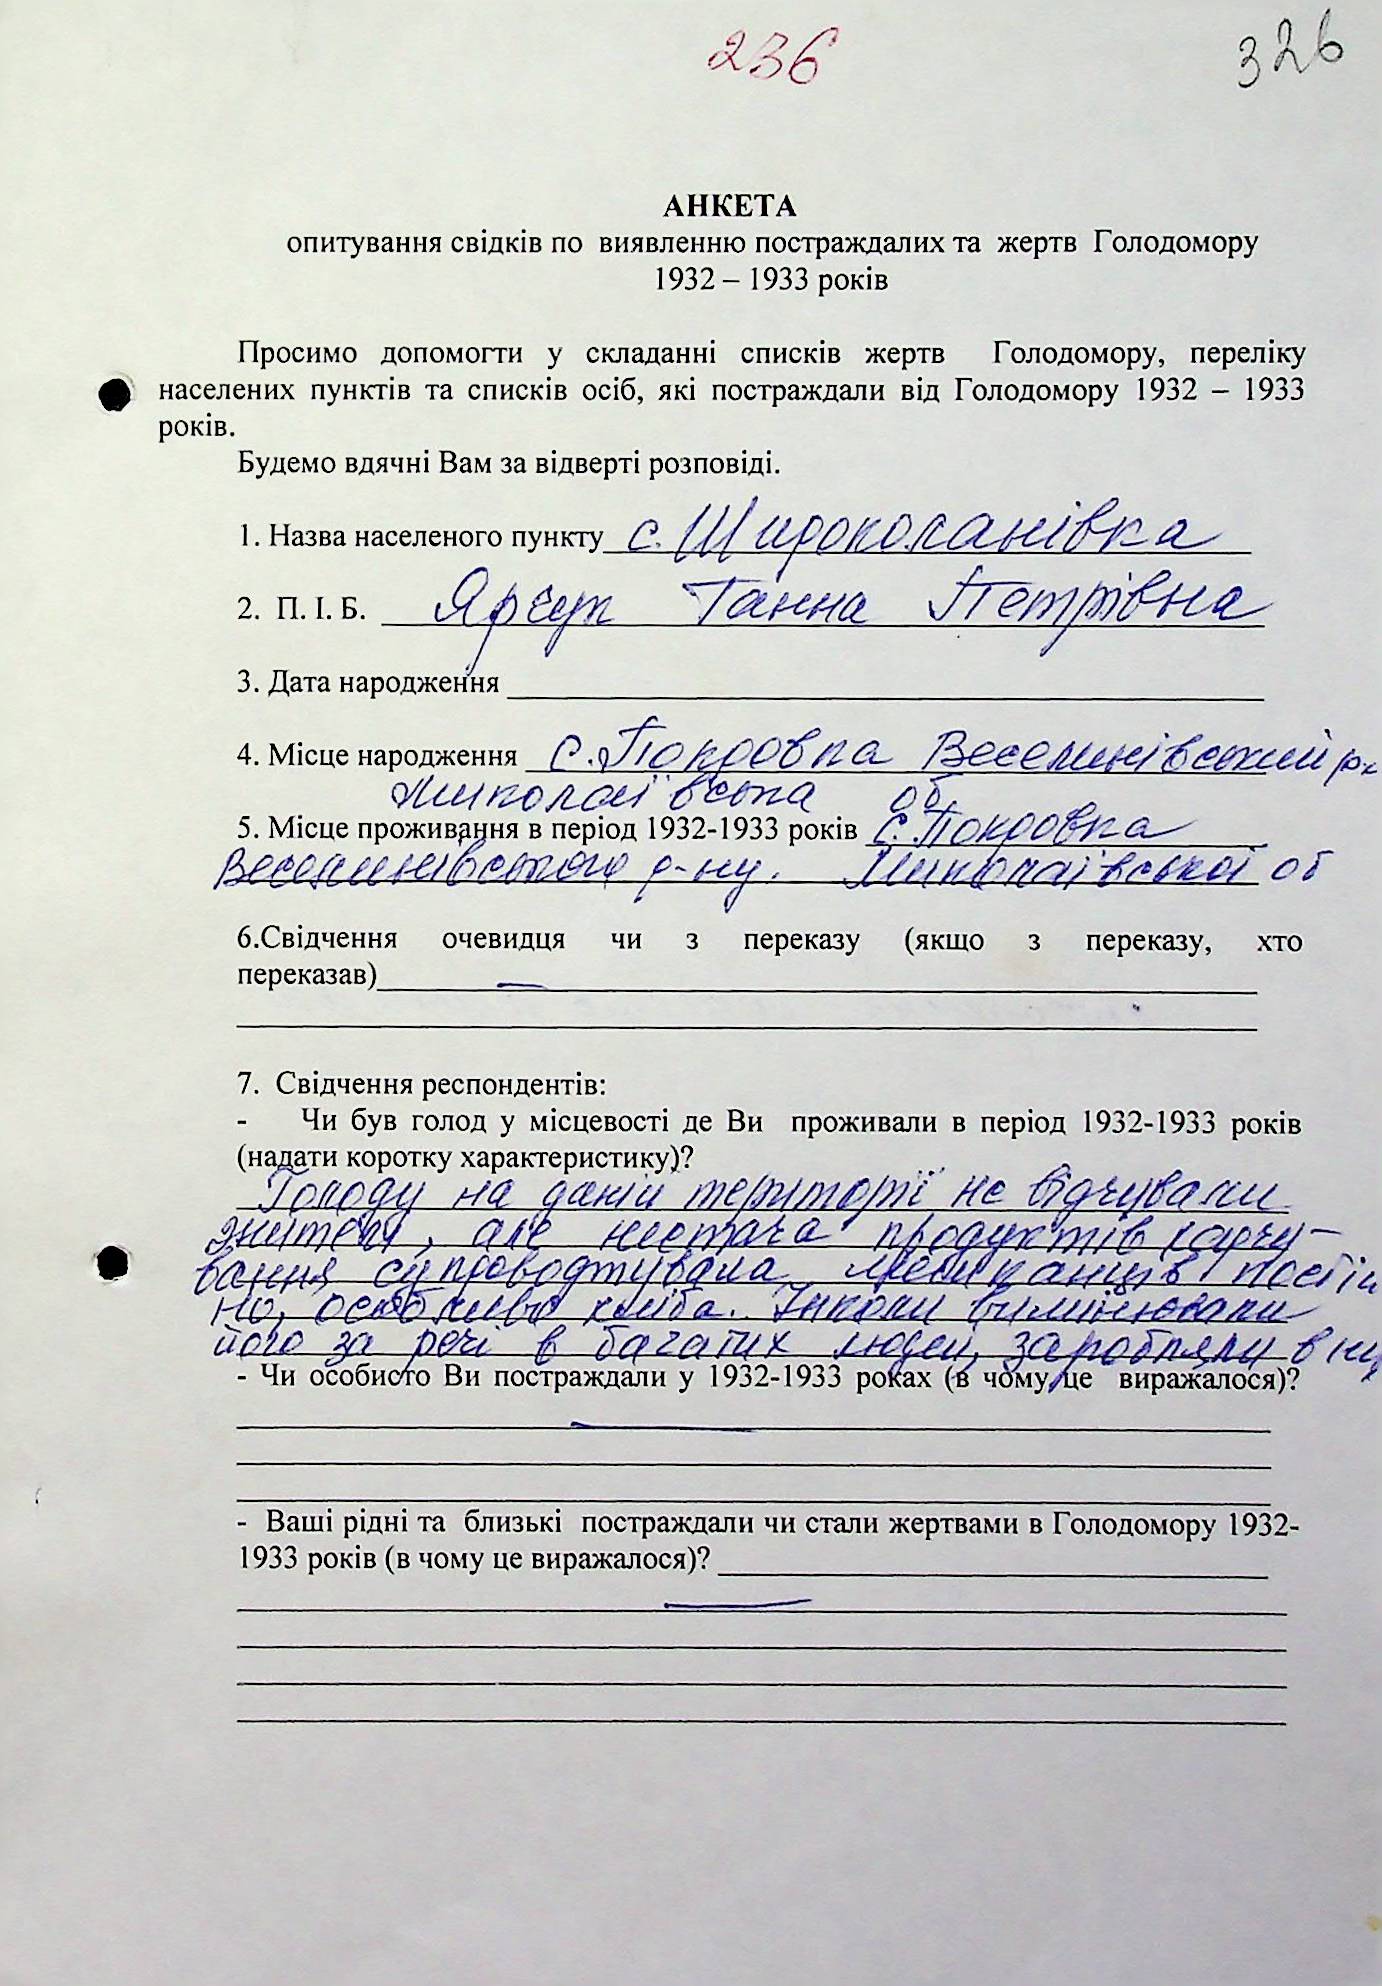 236
326
АНКЕТА
опитування свідків по виявленню постраждалих та жертв Голодомору
1932 – 1933 років
Просимо допомогти у складанні списків жертв Голодомору, переліку
населених пунктів та списків осіб, які постраждали від Голодомору 1932 – 1933
років.
Будемо вдячні Вам за відверті розповіді.
1. Назва населеного пункту с. Широколанівка
2. П. І. Б. Ярчук Ганна Петрівна
3. Дата народження
4. Місце народження с. Покровка Веселинівський р-н
Миколаївська об
5. Місце проживання в період 1932-1933 років с. Покровка
Веселинівського р-ну. Миколаївської об
6.Свідчення очевидця чи з переказу (якщо з переказу, хто
переказав) —
7. Свідчення респондентів:
- Чи був голод у місцевості де Ви проживали в період 1932-1933 років
(надати коротку характеристику)?
Голоду на даній території не відчували
жителі, але нестача продуктів харчу-
вання супроводжувала мешканців постій
но, особливо хліба. Інколи вимінювали
його за речі в багатих людей, заробляли в них
- Чи особисто Ви постраждали у 1932-1933 роках (в чому це виражалося)?
—
- Ваші рідні та близькі постраждали чи стали жертвами в Голодомору 1932-
1933 років (в чому це виражалося)?
—